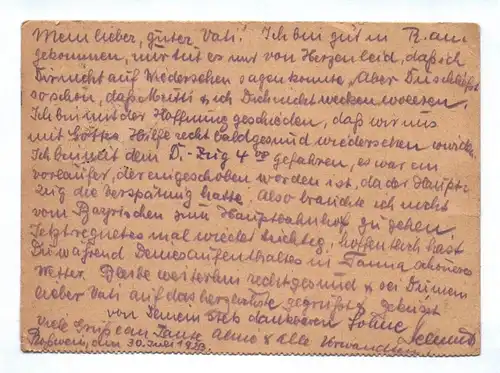 Mein lieber, guter Vati! Ich bin gut in R. an
gekommen, nur tut es mir von Herzen leid, daß ich
Dir nicht auf Wiedersehen sagen konnte, Aber Du schliefst
so schön, daß Mutti u. ich Dich nicht wecken wollten.
Ich bin mit der Hoffnung geschieden, daß wir uns
mit Gottes Hilfe recht bald gesund wiedersehen
Ich bin mit dem D.-Zug 4 gefahren, es war ein
Vorläufer, der eingeschoben worden ist, da der Haupt-
zug die Verspätung hatte. Also brauchte ich nicht
vom Bayrischen zum Hauptbahnhof zu gehen.
Jetzt regnet es mal wieder tüchtig, hoffentlich hast
Du während Deines Aufenthaltes in Tanna schöneres
Wetter. Bleibe weiterhin recht gesund u. sei Du mein
lieber Vati auf das herzlichste gegrüßt u. geküsst
von Deinem Dich dankbaren Sohne Helmut
Viele Grüße an Tante u. alle Verwandten
den 30. Juli